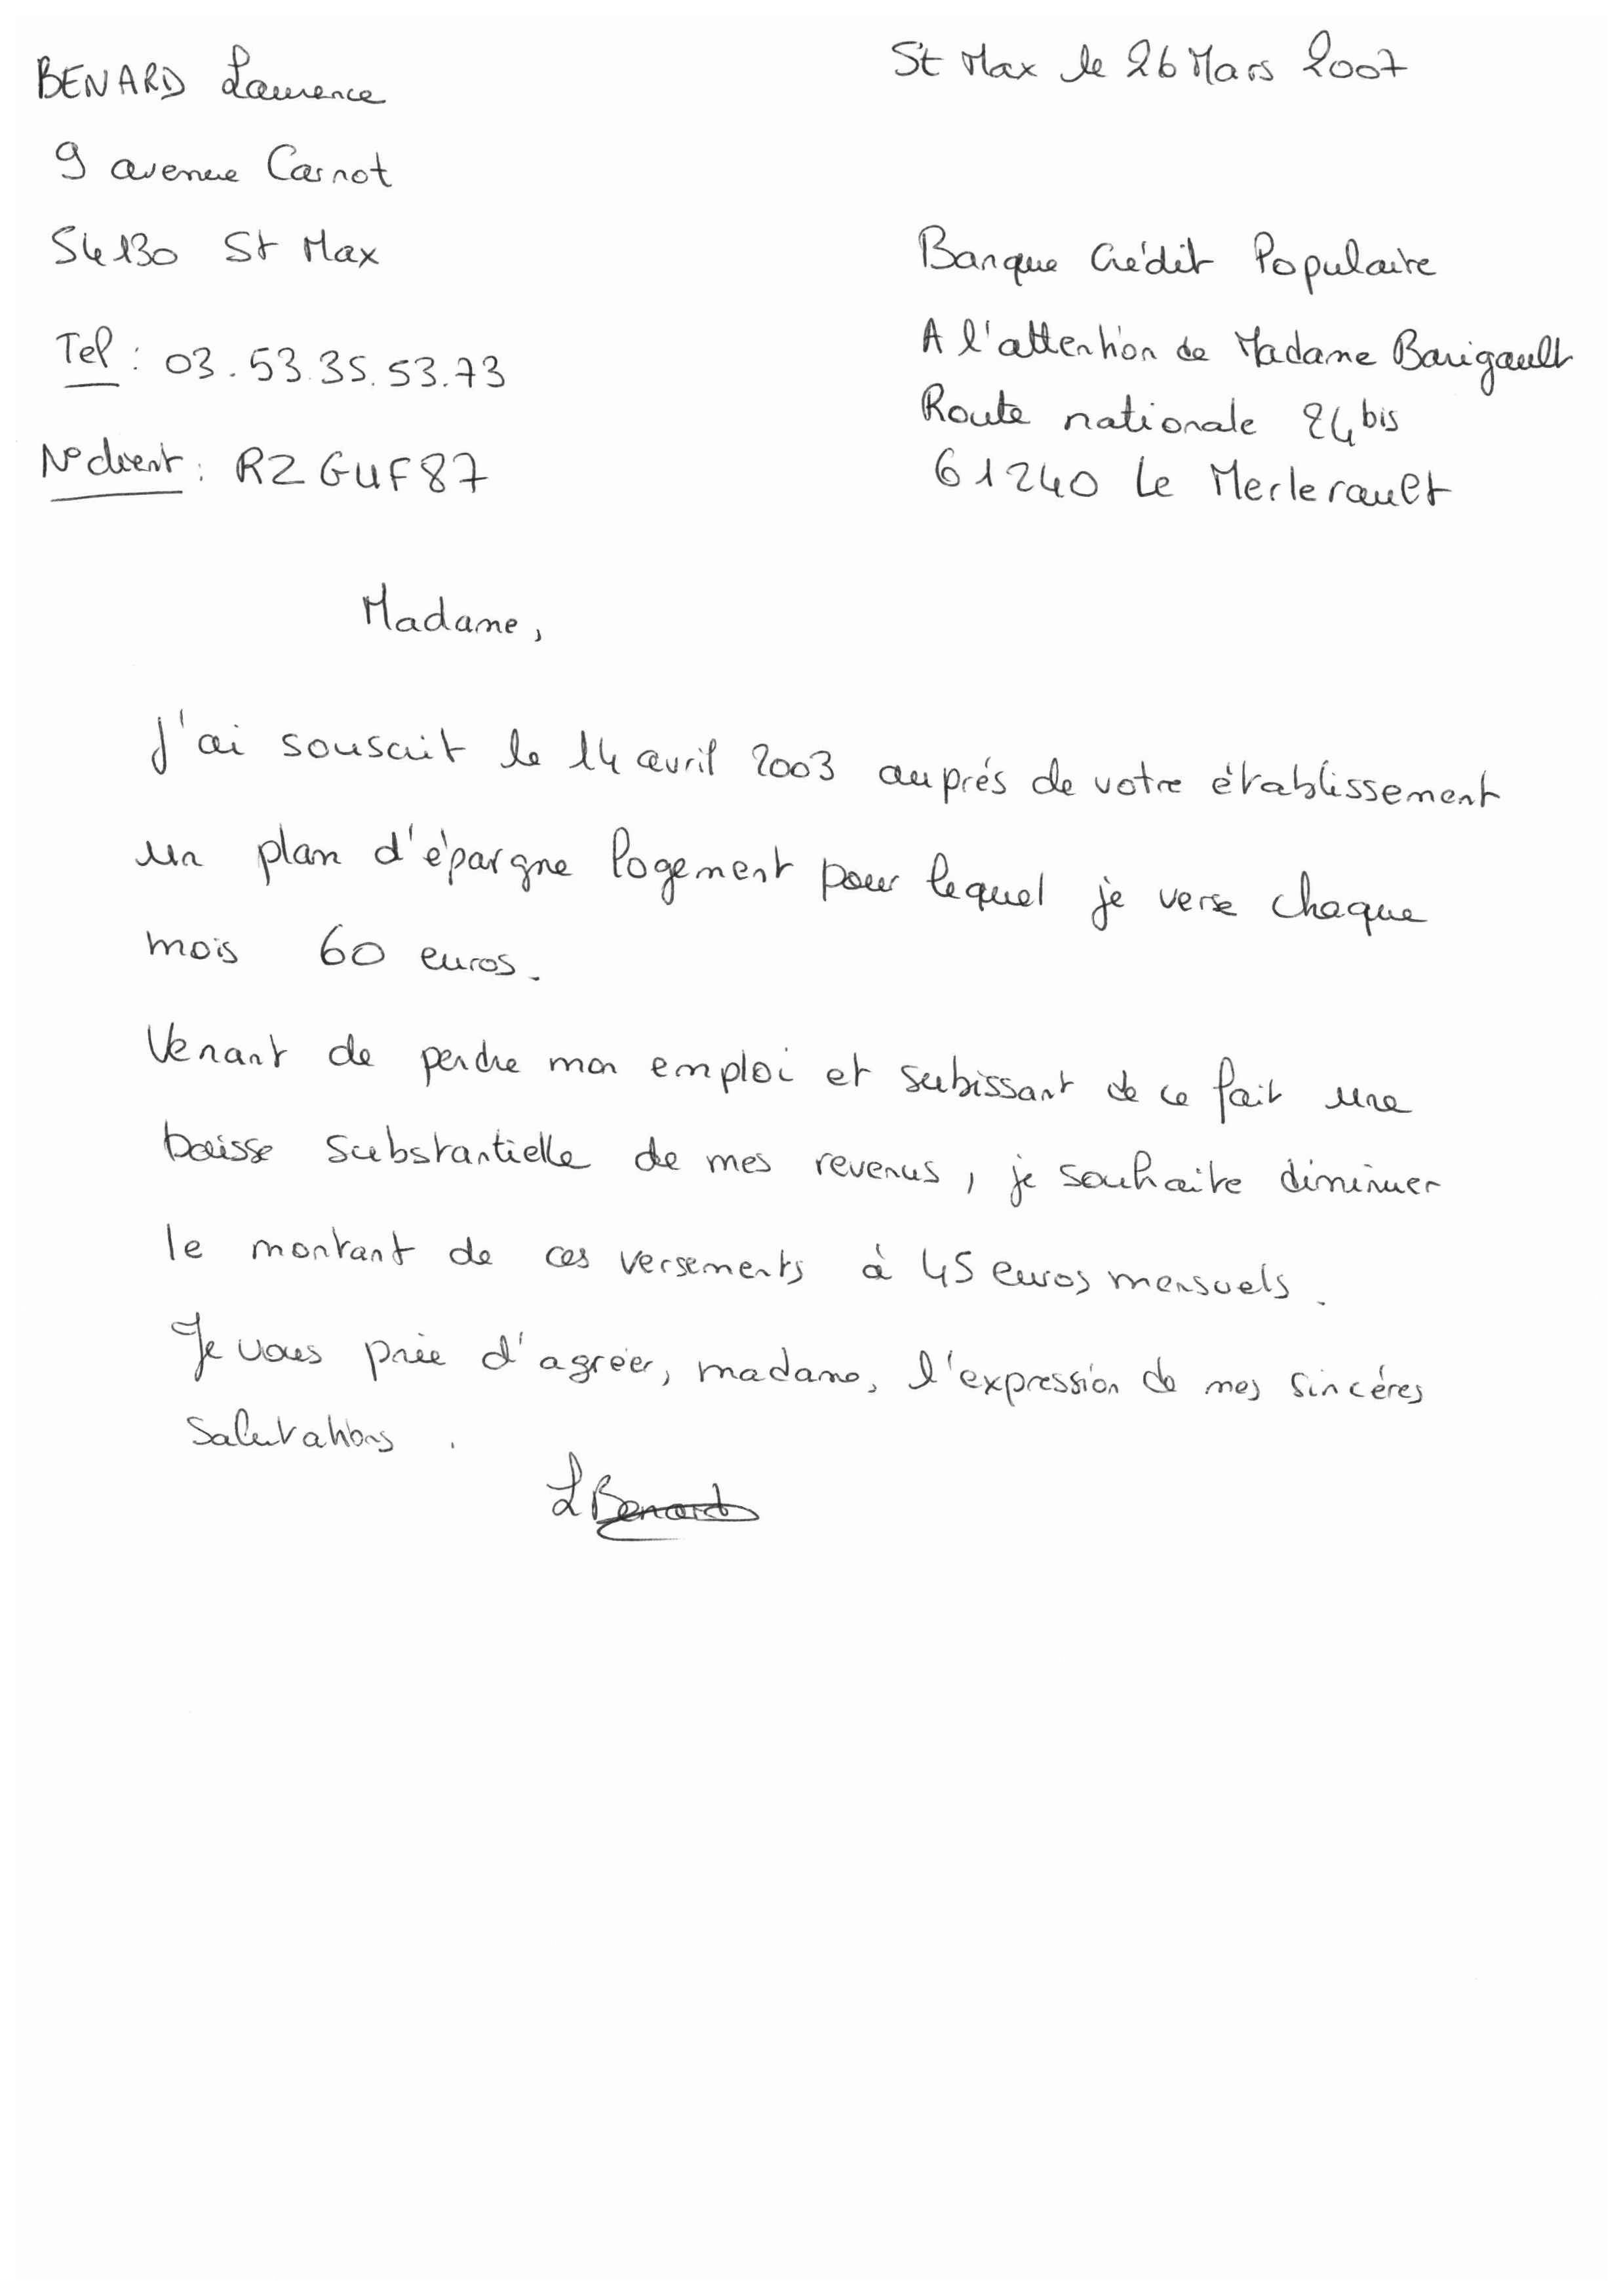 BENARD Laurence
9 avenue Carnot
54130 St Max
Tel : 03.53.35.53.73
N° client : RZGUF87
St Max le 26 Mars 2007
Banque Crédit Populaire
A l'attention de Madame Barigault
Route nationale 24 bis
61240 Le Merlerault
Madame,
J'ai souscrit le 14 avril 2003 auprés de votre établissement
un plan d'épargne logement pour lequel je verse chaque
mois 60 euros.
Venant de perdre mon emploi et subissant de ce fait une
baisse substantielle de mes revenus, je souhaite diminuer
le montant de ces versements à 45 euros mensuels.
Je vous prie d'agréer, madame, l'expression de mes sincéres
salutations.
L Benard